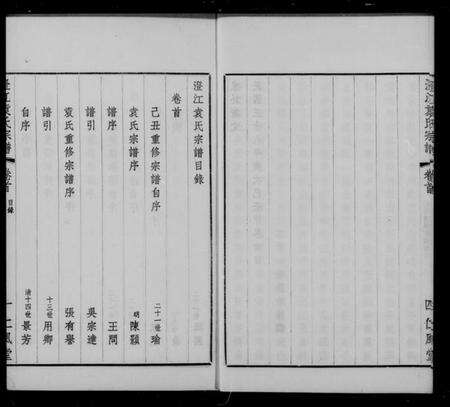 澄江袁氏宗譜目錄
卷首
己丑重修宗譜自序 二十一世瑜
袁氏宗譜序 明陳顥
譜序 王問
譜引 吳宗達
袁氏重修宗譜序 張有譽
譜引 十三世用卿
自序 清十四世景芳
澄江袁氏宗譜 卷首 目錄 一 仁風堂
澄江袁氏宗譜 卷首 四 仁風堂